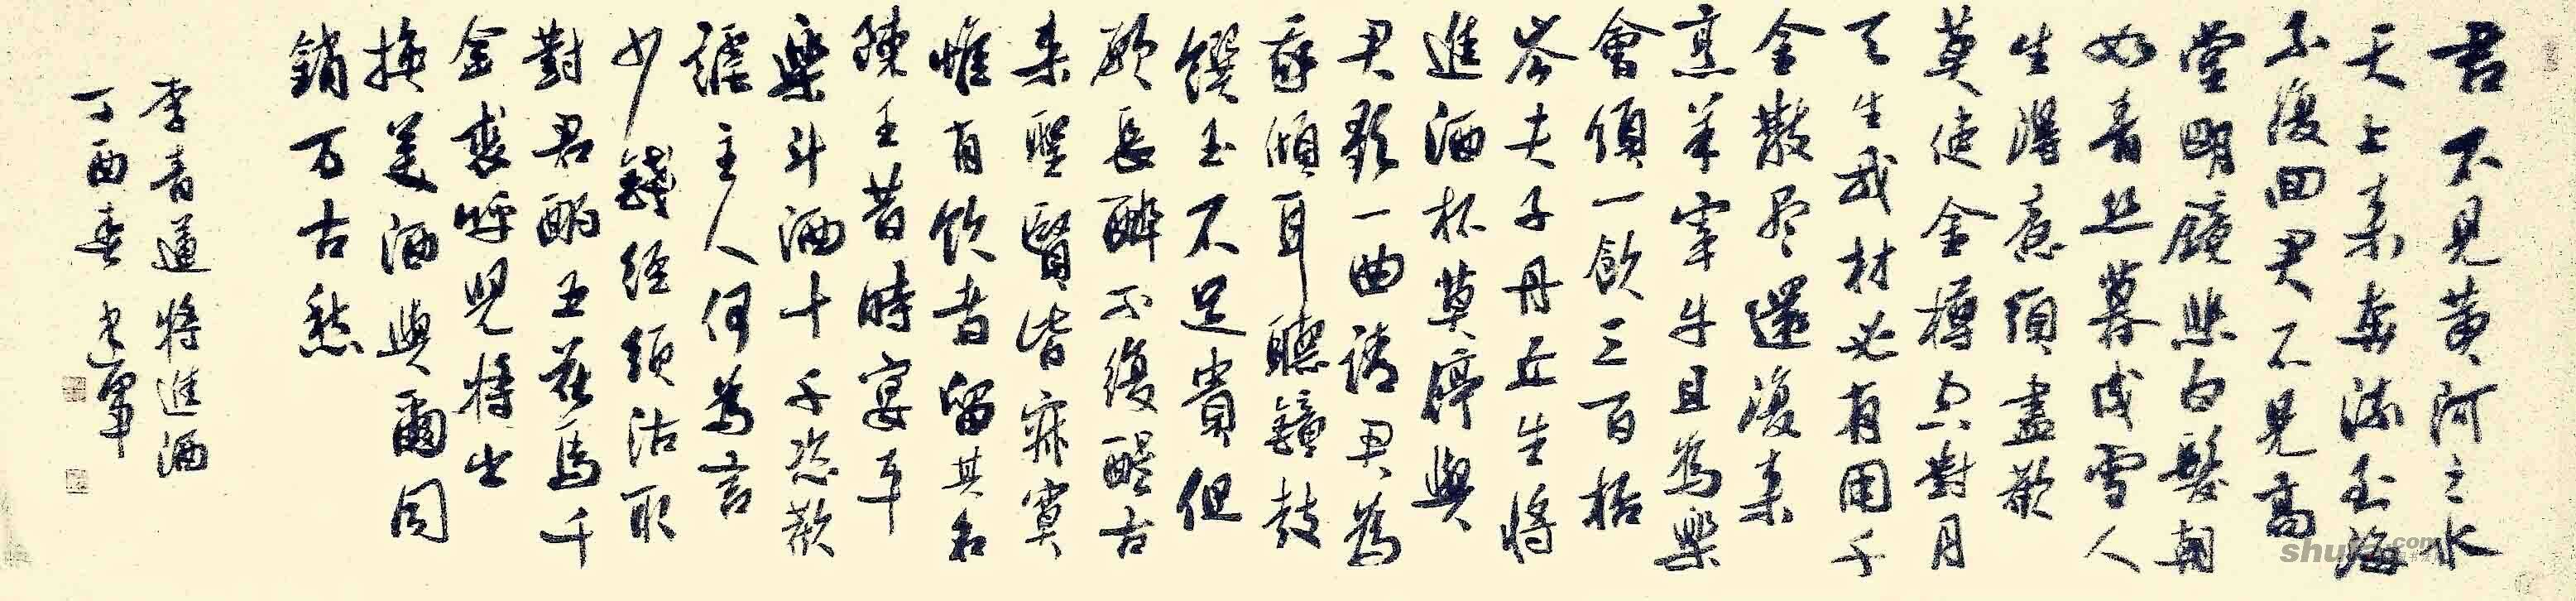 君不见黄河之水
天上来奔流到海
不復回君不見高
堂明鏡悲白髮朝
如青丝暮成雪人
生得意須盡歡
莫使金樽空對月
天生我材必有用千
金散尽還復来
烹羊宰牛且為樂
會須一飲三百杯
岑夫子丹丘生将
進酒杯莫停與
君歌一曲請君為
我傾耳聽鐘鼓
饌玉不足貴但
願長醉不復醒古
来聖賢皆寂寞
惟有饮者留其名
陳王昔時宴平
樂斗酒十千恣歡
謔主人何為言
少錢經須沽取
對君酌五花馬千
金裘呼兒将出
換美酒與爾同
銷万古愁
李青蓮将進酒
丁酉春建軍